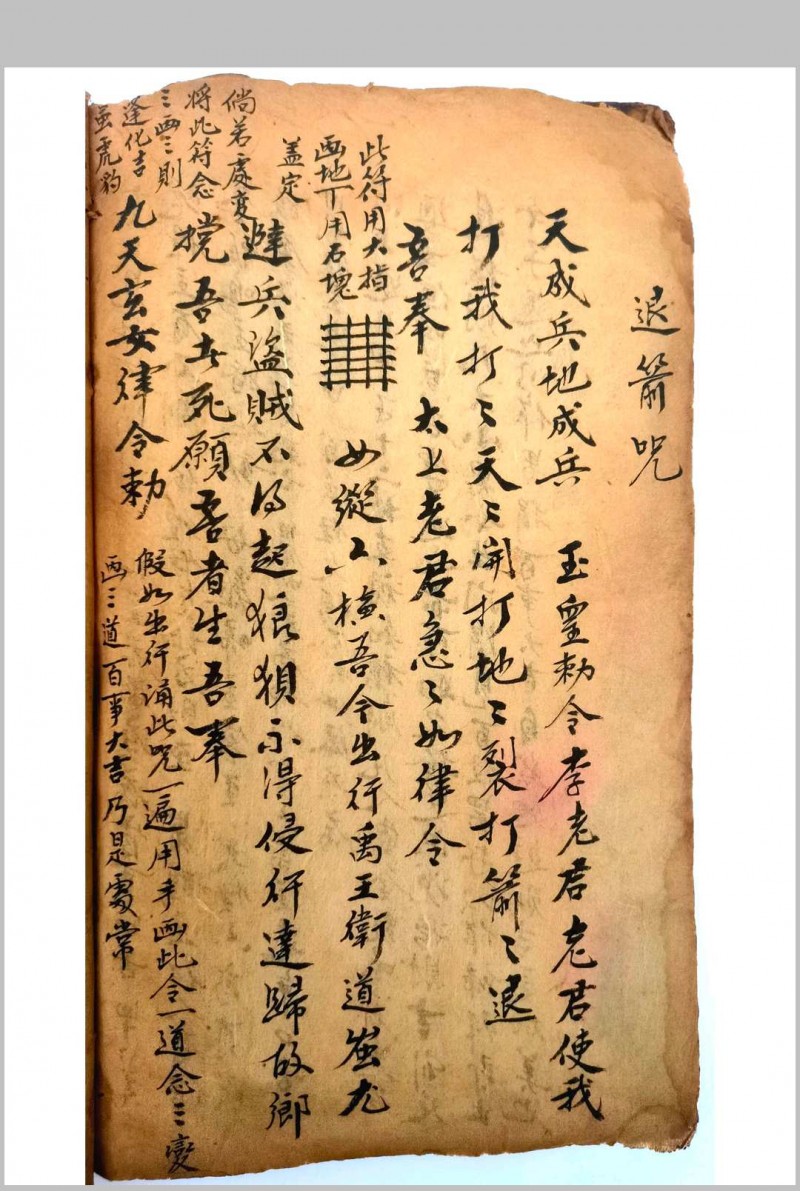 退箭咒
天成兵地成兵 玉皇勅令李老君老君使我
打我打〻天〻開打地〻裂打箭〻退
吾奉 太上老君急〻如律令
此符用大指
画地丅用石塊
盖定
四縱六橫吾今出行禹王衛道蚩尤
避兵盜賊不得起狼狽不得侵行達歸故鄉
撓吾者死願吾者生吾奉
九天玄女律令勅
假如出行誦此咒一遍用手画此令一道念三变
画三道百事大吉乃是處常
倘若處变
将此符念
三画三則
逢化吉
虽虎豹